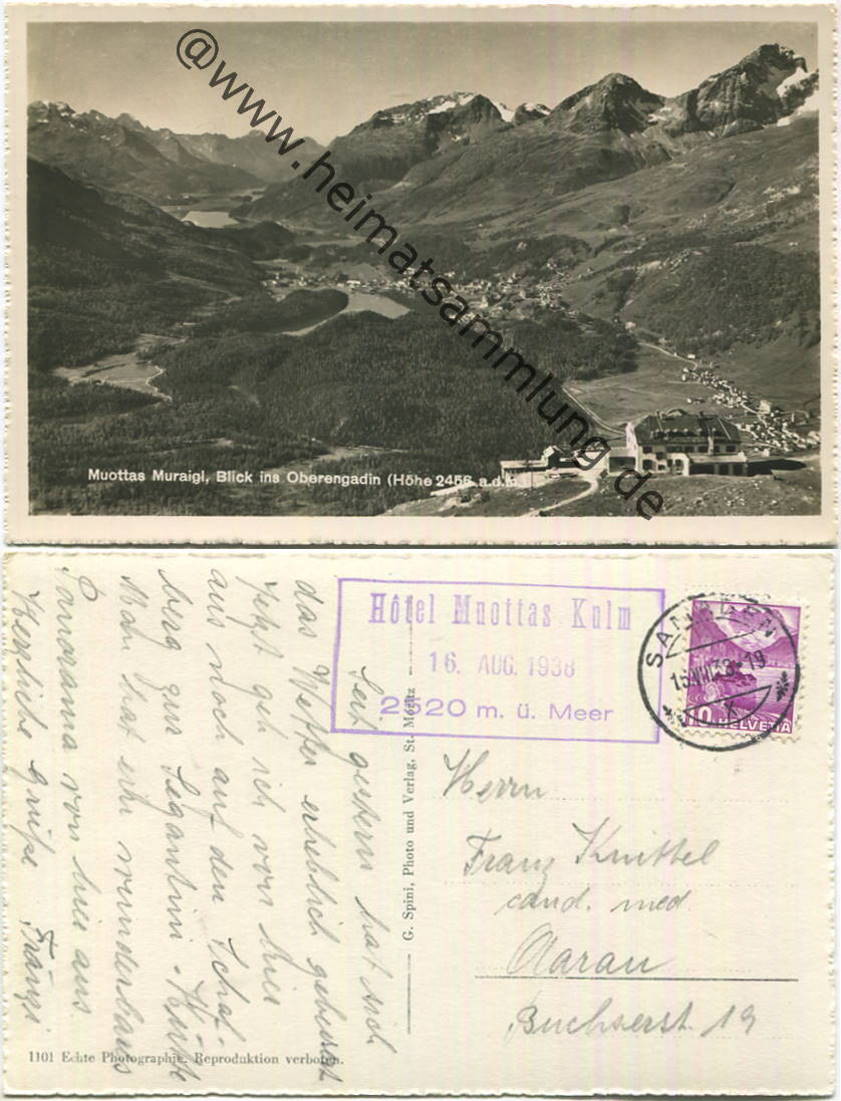 @www.heimatsammlung.de
Muottas Muraigl, Blick ins Oberengadin (Höhe 2456 a.d.m.)
Hôtel Muottas Kulm
16. AUG. 1938
2520 m. ü. Meer
SAMADEN
HELVETIA
Seit gestern hat sich
das Wetter erheblich gebessert
Jetzt geh ich von hier
aus noch auf den Schaf-
berg zur Segantini-Hütte
Man hat ein wunderbares
Panorama von hier aus.
Herzliche Grüße Fränzi
G. Spini, Photo und Verlag, St. Moritz
Herrn
Franz Knittel
cand. med.
Aarau
Buchserst. 19
1101 Echte Photographie. Reproduktion verboten.